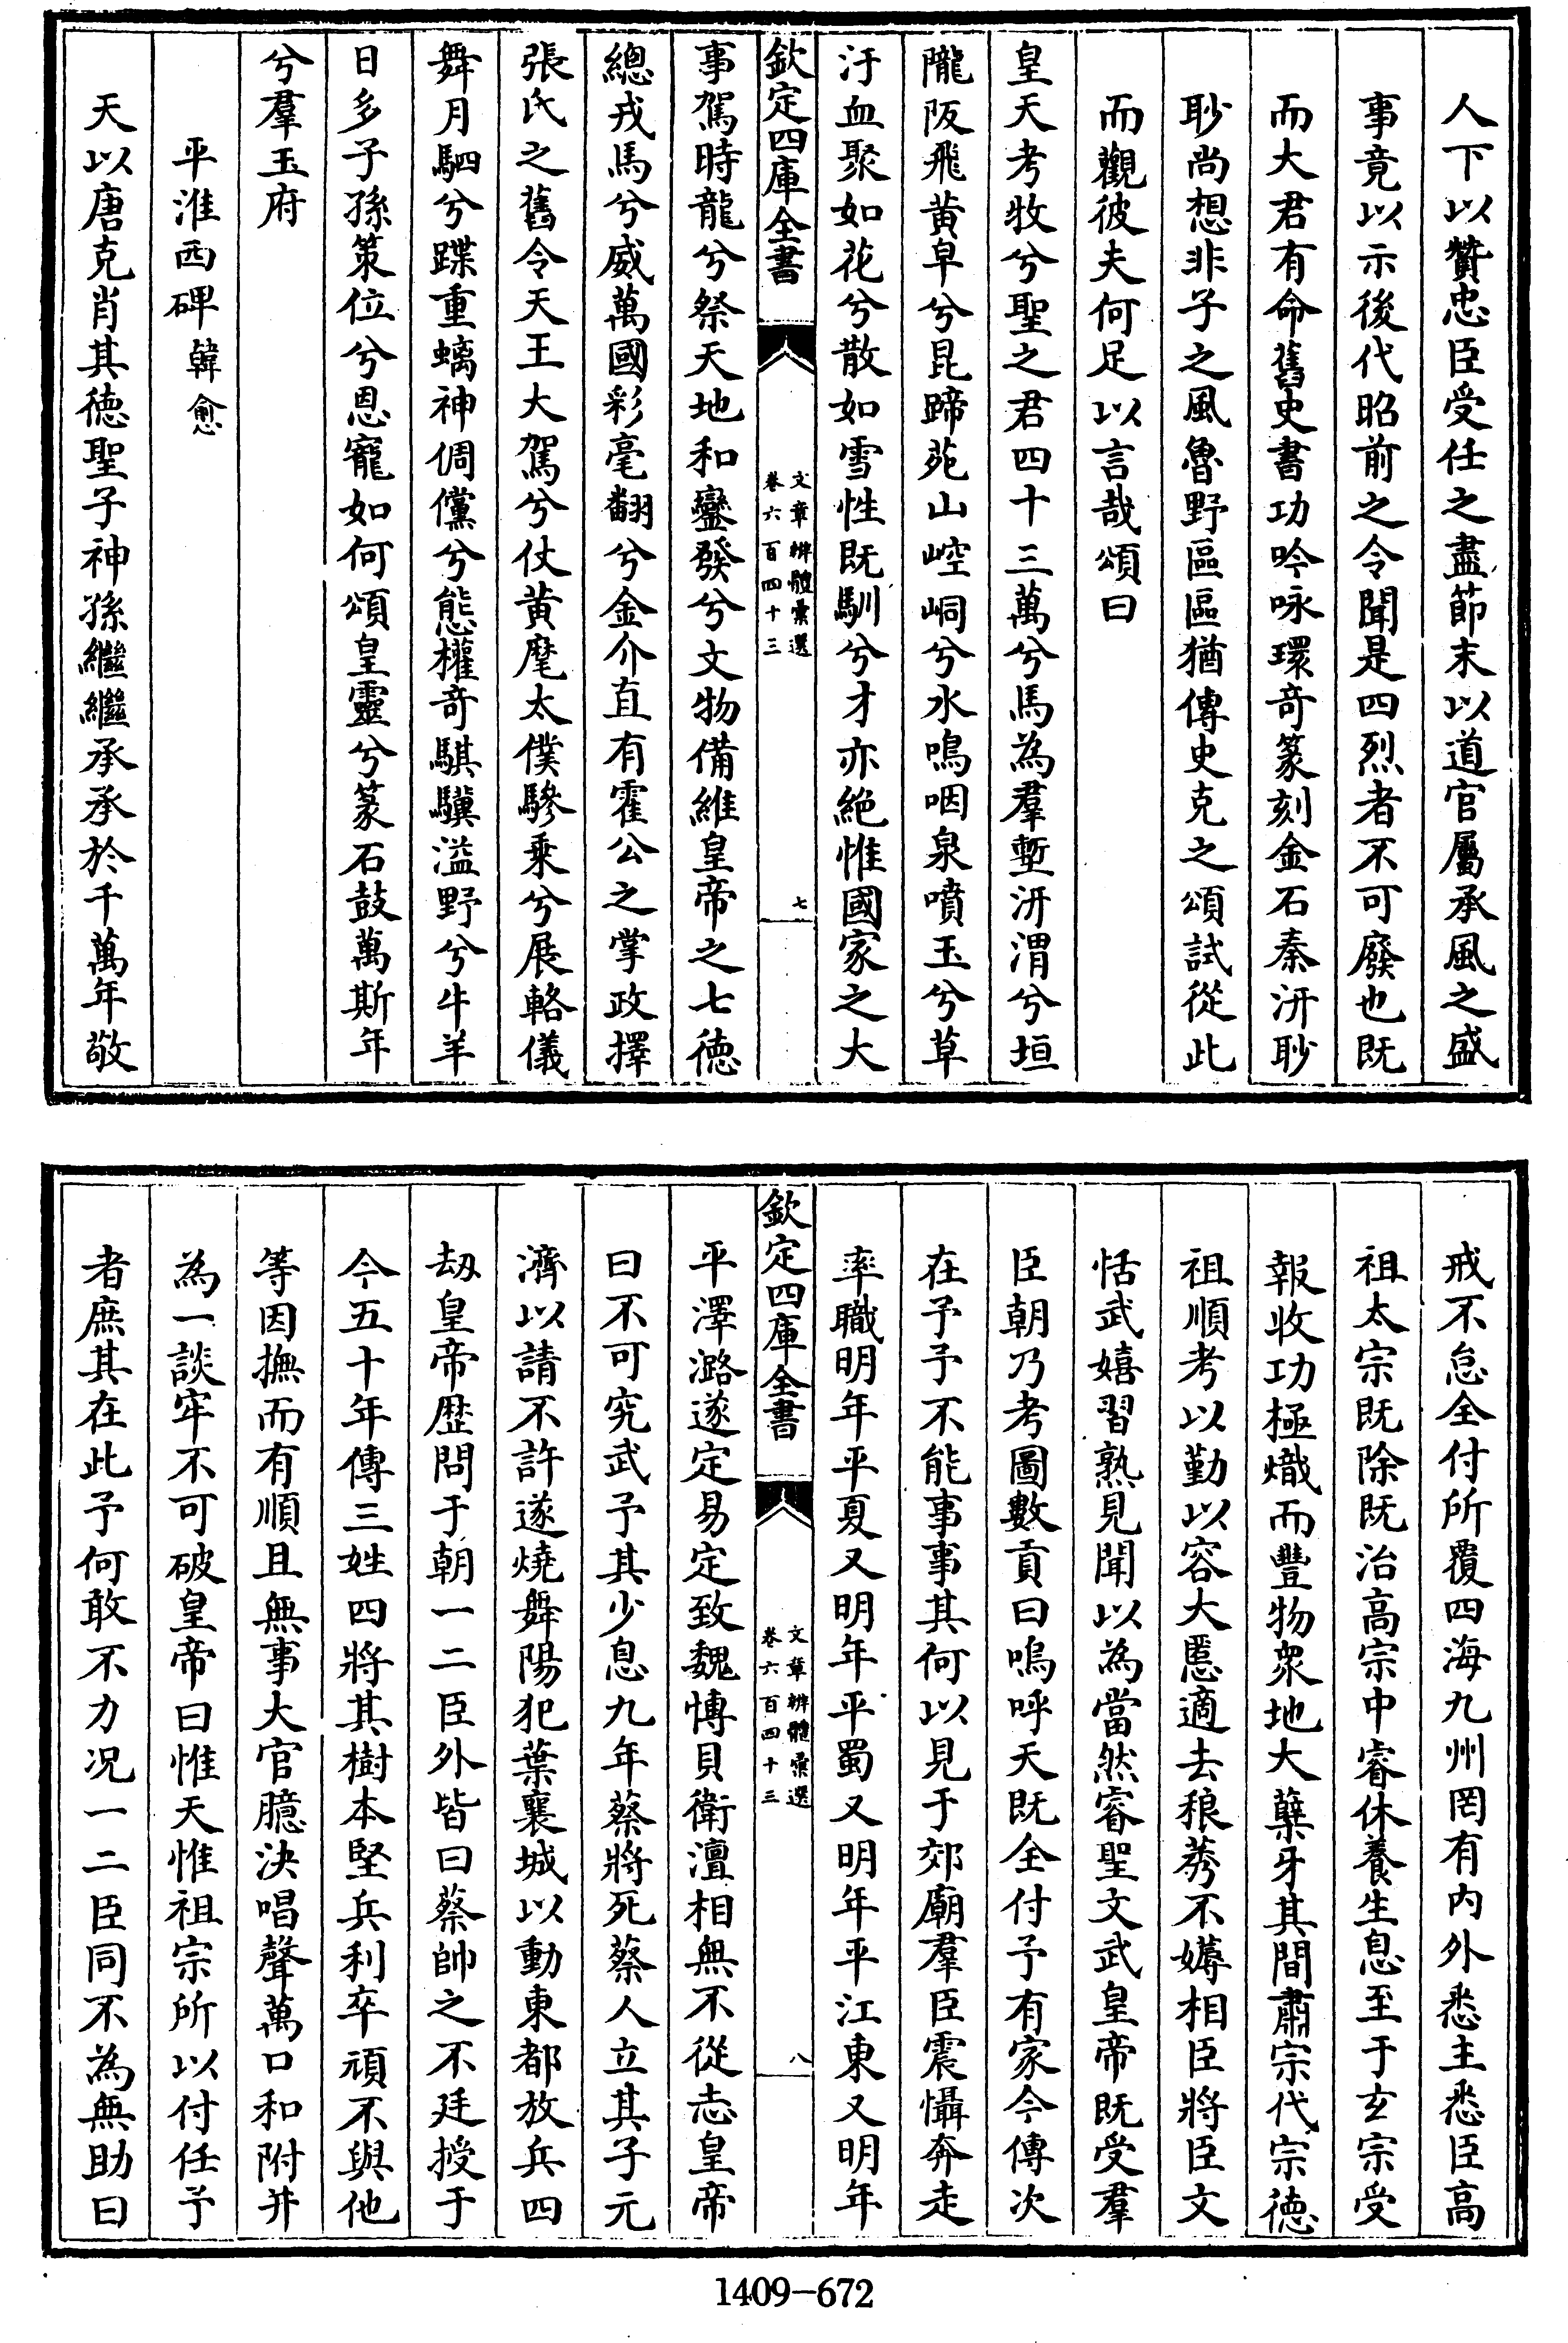 人下以贊忠臣受任之盡節末以道官屬承風之盛
事竟以示後代昭前之令聞是四烈者不可廢也既
而大君有命舊史書功吟咏環奇篆刻金石秦汧眇
眇尚想非子之風魯野區區猶傳史克之頌試從此
而觀彼夫何足以言哉頌曰
皇天考牧兮聖之君四十三萬兮馬為羣塹汧渭兮垣
隴阪飛黄皁兮昆蹄苑山崆峒兮水嗚咽泉噴玉兮草
汙血聚如花兮散如雪性既馴兮才亦絶惟國家之大
欽定四庫全書
文章辨體彚選
卷六百四十三
七
事駕時龍兮祭天地和鑾發兮文物備維皇帝之七徳
總戎馬兮威萬國彩毫翻兮金介直有霍公之掌政擇
張氏之舊令天王大駕兮仗黄麾太僕驂乗兮展輅儀
舞月駟兮蹀重螭神倜儻兮態權竒騏驥溢野兮牛羊
日多子孫策位兮恩寵如何頌皇靈兮篆石鼓萬斯年
兮羣玉府
平淮西碑 韓愈
天以唐克肖其徳聖子神孫繼繼承承於千萬年敬
戒不怠全付所覆四海九州罔有内外悉主悉臣高
祖太宗既除既治高宗中睿休養生息至于玄宗受
報收功極熾而豐物衆地大蘖牙其間肅宗代宗徳
祖順考以勤以容大慝適去稂莠不薅相臣將臣文
恬武嬉習熟見聞以為當然睿聖文武皇帝既受羣
臣朝乃考圖數貢曰嗚呼天既全付予有家今傳次
在予予不能事事其何以見于郊廟羣臣震懾奔走
率職明年平夏又明年平蜀又明年平江東又明年
欽定四庫全書
文章辨體彚選
卷六百四十三
八
平澤潞遂定易定致魏博貝衛澶相無不從志皇帝
曰不可究武予其少息九年蔡將死蔡人立其子元
濟以請不許遂燒舞陽犯葉襄城以動東都放兵四
刼皇帝歴問于朝一二臣外皆曰蔡帥之不廷授于
今五十年傳三姓四將其樹本堅兵利卒頑不與他
等因撫而有順且無事大官臆決唱聲萬口和附并
為一談牢不可破皇帝曰惟天惟祖宗所以付任予
者庶其在此予何敢不力况一二臣同不為無助曰
1409-672